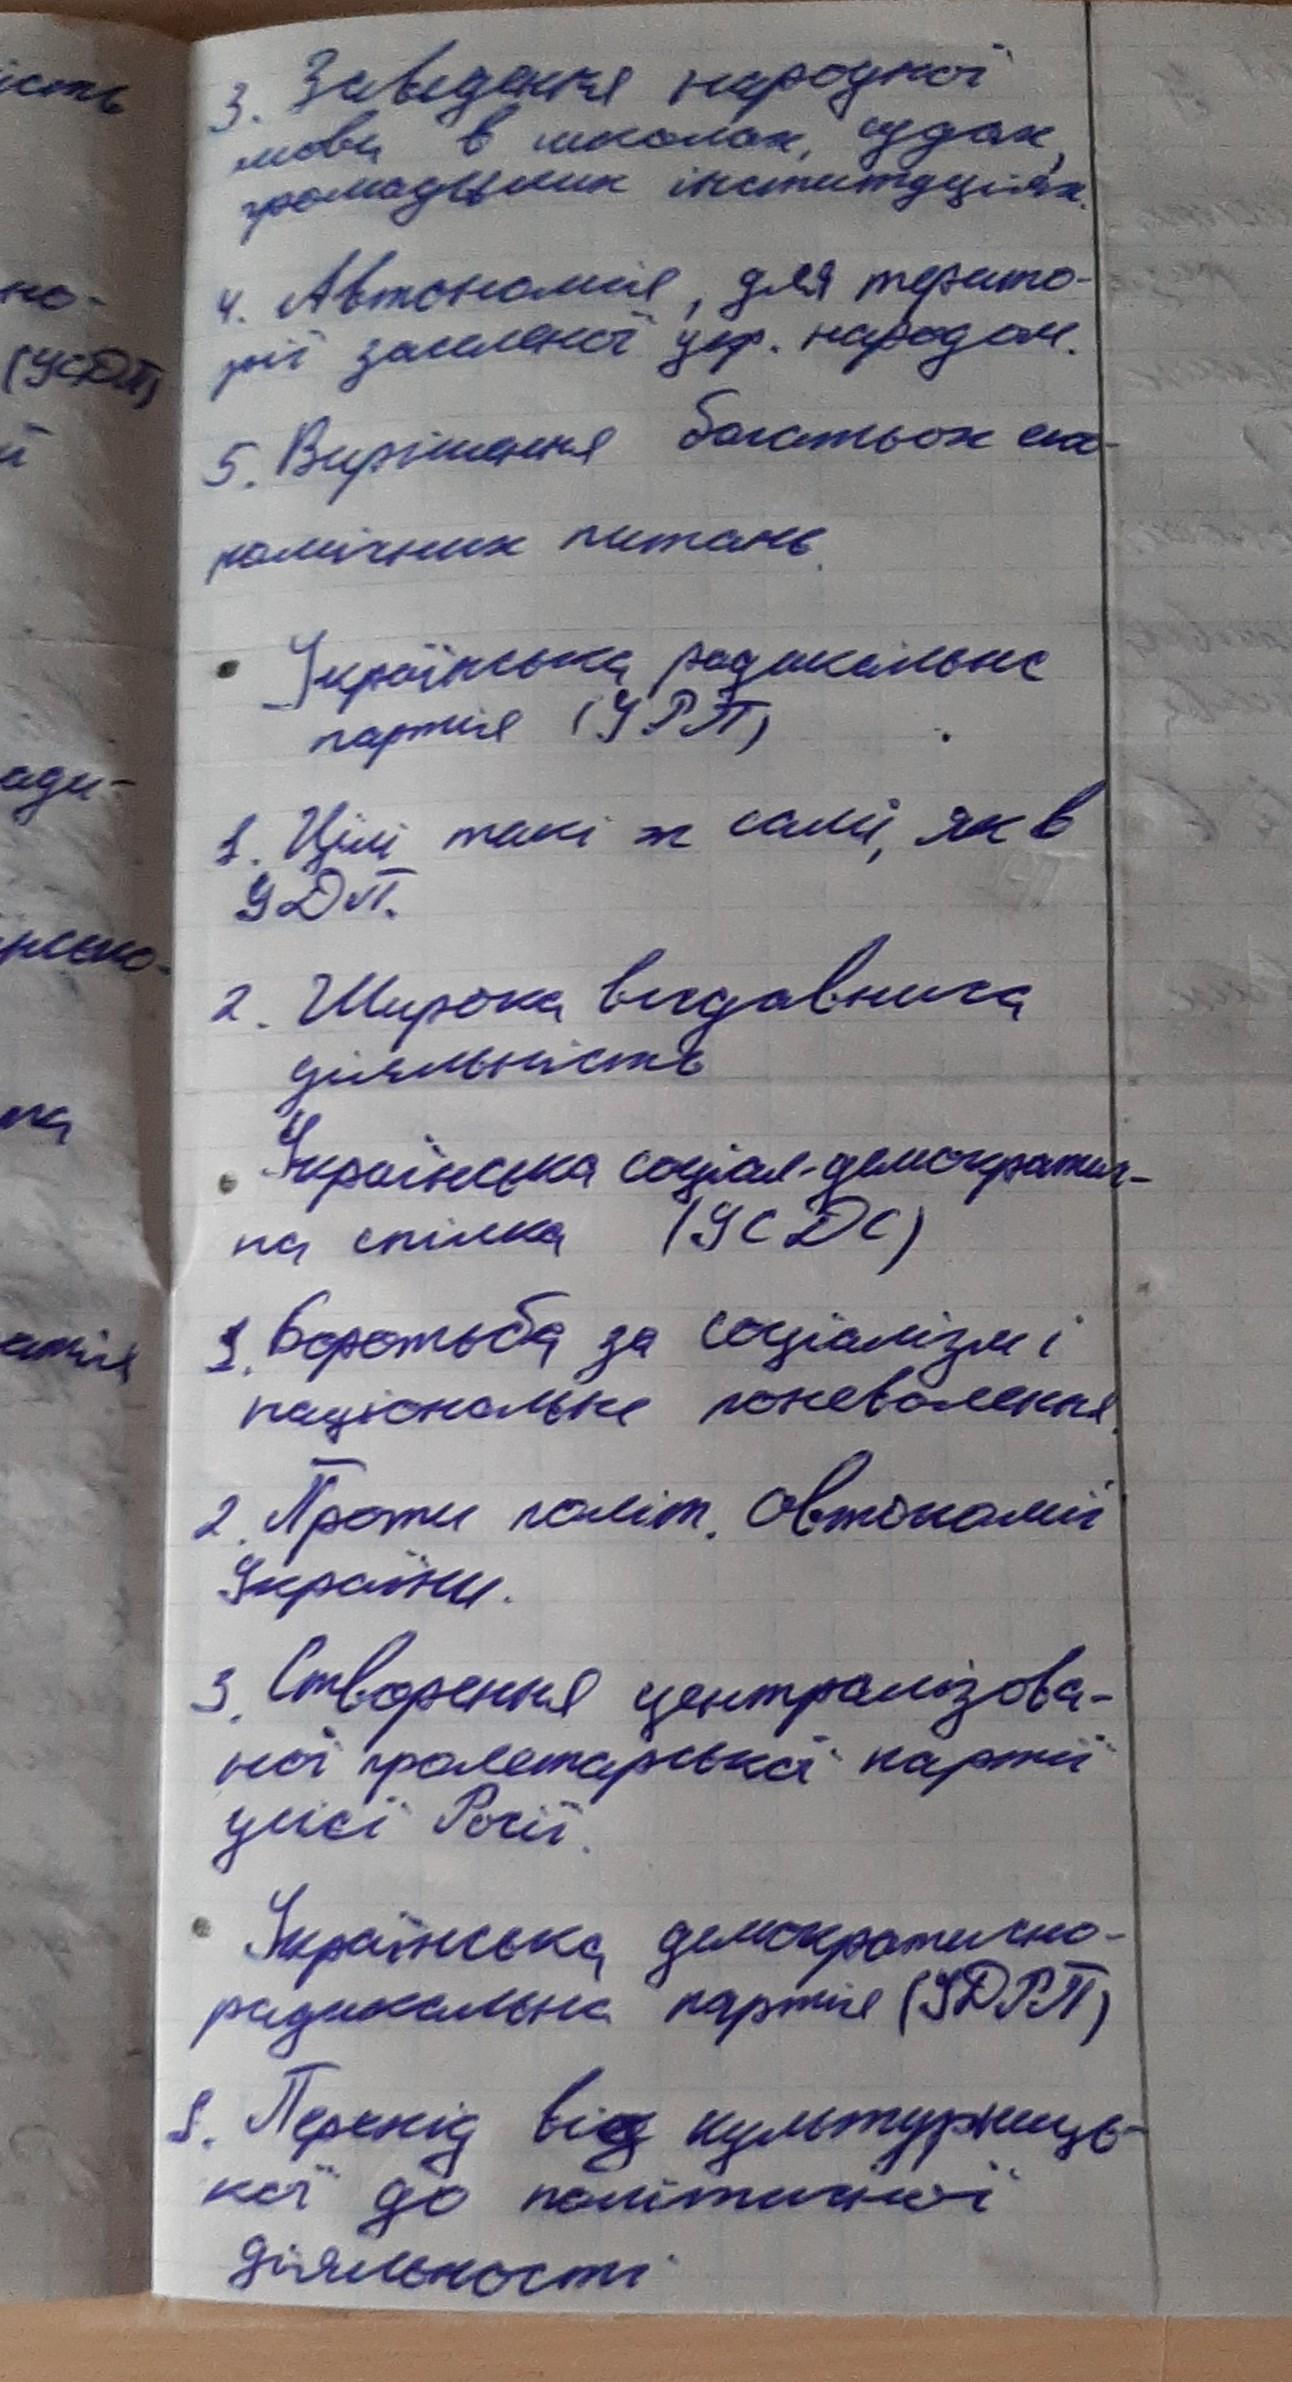 3. Заведення народної
мови в школах, судах,
громадських інституціях.
4. Автономія, для терито-
рії заселеної укр. народом.
5. Вирішення багатьох еко-
номічних питань.
• Українська радикальна
партія (УРП)
1. Цілі такі ж самі, як в
УДП.
2. Широка видавнича
діяльність
• Українська соціал-демократич-
на спілка (УСДС)
1. Боротьба за соціалізм і
національне поневолення.
2. Проти політ. автономії
України.
3. Створення централізова-
ної пролетарської партії
усієї Росії.
• Українська демократично-
радикальна партія (УДРП)
1. Перехід від культурниць-
кої до політичної
діяльності
ість
но-
(УСДРП)
ади-